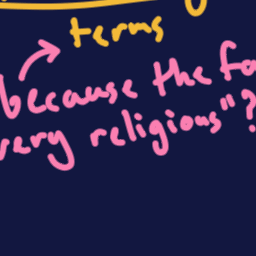 terms
because the fo
very religious"?